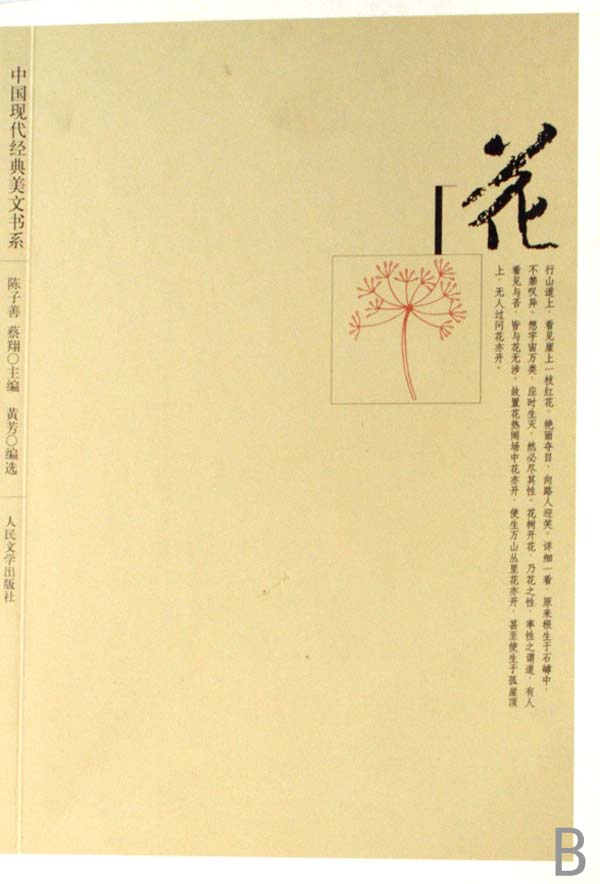 中国现代经典美文书系
陈子善 蔡翔◎主编 黄芳◎编选
人民文学出版社
花
行山道上，看见崖上一枝红花，艳丽夺目，向路人迎笑。详细一看，原来根生于石罅中，
不禁叹异。想宇宙万类，应时生灭，然必尽其性。花树开花，乃花之性，率性之谓道，有人
看见与否，皆与花无涉。故置花热闹场中花亦开，使生万山丛里花亦开，甚至使生于孤崖顶
上，无人过问花亦开。
B